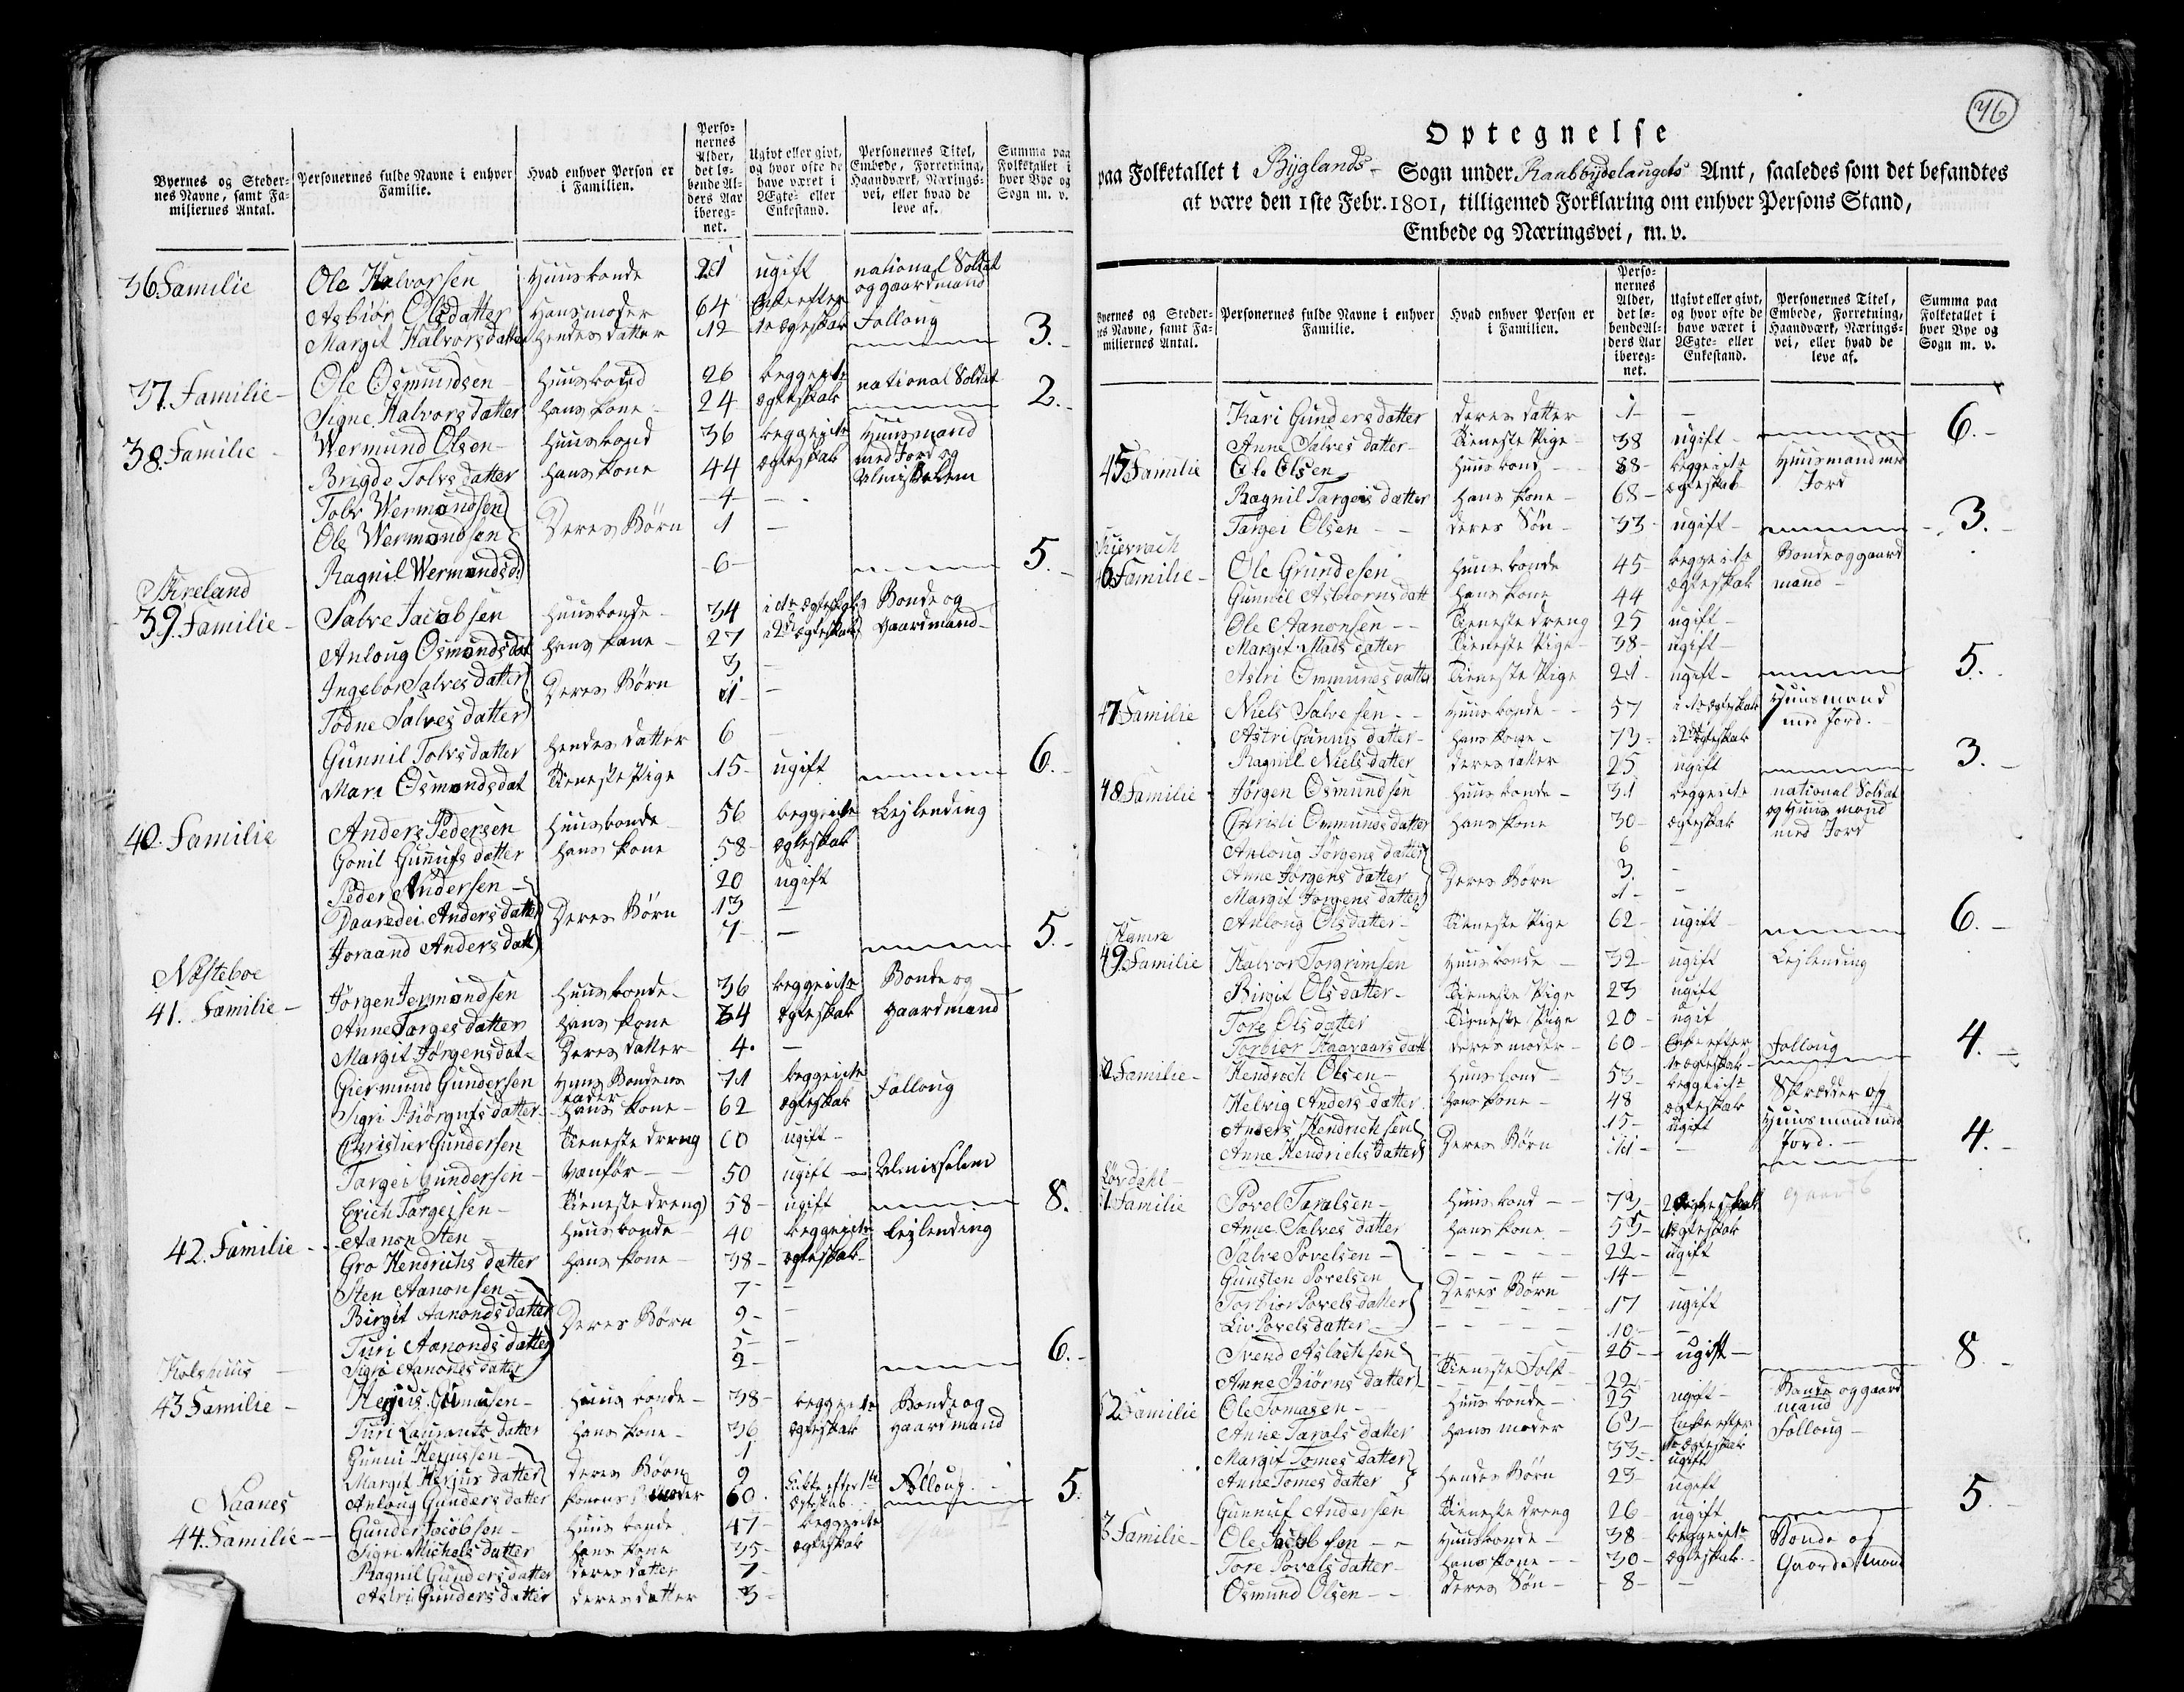 Byernes og Steder-
nes Navne, samt Fa-
miliernes Antal.
Personernes fulde Navne i enhver
Familie.
Hvad enhver Person er
i Familien.
Perso-
nernes
Alder,
det lø-
bende Al-
ders Aar
ibereg-
net.
Ugivt eller givt,
og hvor ofte de
have været i
Ægte- eller
Enkestand.
Personernes Titel,
Embede, Forretning,
Haandværk, Nærings-
vei, eller hvad de
leve af.
Summa paa
Folketallet i
hver Bye og
Sogn m. v.
36 Familie Ole Halvorsen Huusbonde 21 ugift national Soldat og gaardmand
Asbiör Olsdatter Hans moder 64 Enke efter
Margit Halvorsdatter Hendes datter 12 1te ægteskab Folloug 3.
37. Familie Ole Osmundsen Huusbond 26 begge i 1te national Soldat
Signe Halvorsdatter Hans kone 24 ægteskab 2.
38. Familie Wermund Olsen Huusbond 36 begge i 1te Huusmand
Brigde Tolvsdatter Hans kone 44 ægteskab med Jord og
Tolv Wermundsen 4 -
Ole Wermundsen Deres Børn 1 -
Ragnil Wermundsd. 6 5.
Skreland
39. Familie Salve Jacobsen Huusbonde 34 i 1te ægteskab Bonde og
Anloug Osmundsdat Hans kone 27 i 2det ægteskab Gaardmand
Ingebor Salvesdatter 3 -
Todne Salvesdatter Deres Børn 1 -
Gunnil Tolvsdatter Hendes datter 6 -
Mari Osmundsdat Tieneste Pige 15 ugift 6.
40. Familie Anders Pedersen Huusbonde 56 begge i 1te Lejlending
Gonil Gunnufsdatter Hans kone 58 ægteskab
Peder Andersen 20 ugift
Daaredei Andersdatter Deres Børn 13 -
Joraand Andersdatt 7 - 5.
Næsteboe
41. Familie Jørgen Jermundsen Huusbonde 36 begge i 1te Bonde og
Anne Targesdatter Hans kone 34 ægteskab gaardmand
Margit Jörgensdat Deres datter 4. -
Giermund Gundersen Huus Bondens fader 71 begge i 1te Folloug
Sigri Biörgufsdatter Hans kone 62 ægteskab
Christier Gundersen Tieneste dreng 60 ugift
Targei Gundersen vanför 50 ugift Almisselem
Erich Targeisen Tieneste dreng 58 ugift 8.
42. Familie Aanon Sten Huusbonde 40 begge i 1te Lejlending
Gro Hendrichsdatter Hans kone 38 ægteskab
Sten Aanonsen 7 -
Birgit Aanondsdatter Deres Børn 9 -
Turi Aanondsdatter 5 -
Sigri Aanondsdatter 2 6.
Kolshuus
43 Familie Herjus Gunnusen Huusbonde 38 begge i 1te Bonde og
Turi Lauantsdatter Hans kone 36 ægteskab gaardmand
Gunni Herjussen Deres Børn 1
Margit Herjusdatter 9
Anloug Gundersdatter konens Moder 60 Enke efter 1te Ægteskab Folloug. 5.
Naanes
44. Familie Gunder Jocobsen Huusbonde 47 begge i 1te
Sigri Michelsdatter Hans kone 35 ægteskab
Ragnil Gundersdatter deres datter 7
Astri Gundersdatter deres datter 3
46
Optegnelse
paa Folketallet i Byglands Sogn under Raabbydelaugets Amt, saaledes som det befandtes
at være den 1ste Febr. 1801, tilligemed Forklaring om enhver Persons Stand,
Embede og Næringsvei, m. v.
Byernes og Steder-
nes Navne, samt Fa-
miliernes Antal.
Personernes fulde Navne i enhver
Familie.
Hvad enhver Person er
i Familien.
Perso-
nernes
Alder,
det lø-
bende Al-
ders Aar
ibereg-
net.
Ugivt eller givt,
og hvor ofte de
have været i
Ægte- eller
Enkestand.
Personernes Titel,
Embede, Forretning,
Haandværk, Nærings-
vei, eller hvad de
leve af.
Summa paa
Folketallet i
hver Bye og
Sogn m. v.
Kari Gundersdatter deres datter 1 -
Anne Salvesdatter Tieneste Pige 38 ugift 6.
45 Familie Ole Olsen Huusbond 88 begge i 1te Huusmand med
Ragnil Targeisdatter Hans kone 68 ægteskab Jord
Targei Olsen deres Søn 33 ugift 3.
46 Familie Ole Grundesen Huusbonde 45 begge i 1te Bonde og gaard
Gunvil Asbiornsdatt Hans kone 44 ægteskab mand
Ole Aanonsen Tieneste dreng 25 ugift
Margit Madsdatter Tieneste Pige 38 ugift
Astri Ommundsdatter Tieneste Pige 21 ugift 5.
47 Familie Niels Salvesen Huusbonde 57 i 1te ægteskab Huusmand
Astri Gunnisdatter Hans kone 73 i 2det ægteskab med Jord.
Ragnil Nielsdatter deres datter 25 ugift 3.
48 Familie Jørgen Osmundsen Huusbonde 31 begge i 1te national Soldat
Christi Ommundsdatter Hans kone 30 ægteskab og Huusmand med Jord
Anloug Jørgensdatter 6
Anne Jørgensdatter Deres Børn 3 -
Margit Jørgensdatter 1 -
Anloug Olsdatter Tieneste Pige 62 ugift 6.
Hamre
49. Familie Halvor Torgrimsen Huusbonde 32 ugift Lejlending
Birgit Olsdatter Tieneste Pige 23 ugift
Tore Olsdatter Tieneste Pige 20 ugift
Torbior Haavaarsdatt deres moder 60 Enke efter 1te ægteskab Folloug 4.
Familie Hendrech Olsen Huusbond 53 begge i 1te Skrædder og
Helvig Andersdatter Hans kone 48 ægteskab Huusmand med
Anders Hendrichsen 15 ugift Jord.
Anne Hendrichsdatter Deres Børn 11 - 4.
Lövdahl
51 Familie Povel Taralsen Huusbond 73 2 ægteskab
Anne Salvesdatter Hans kone 55 ægteskab
Salve Povelsen 22 ugift
Gunsten Povelsen Deres Börn 14 -
Torbior Povelsdatter 17 ugift
Liv Povelsdatter 10 -
Svend Aslachsen Tieneste Folk 26 ugift 8
Anne Biørnsdatter 22
52 Familie Ole Tomasen Huusbonde 25 ugift Bonde og gaard mand
Anne Taralsdatter Hans moder 63 Enke efter 1te ægteskab Folloug
Margit Tomesdatter 33 ugift
Anne Tomesdatter Hendes Börn 23 ugift
Gunnuf Andersen Tieneste dreng 26 ugift 5.
3 Familie Ole Jacobsen Huusbonde 38 begge i 1te Bonde og
Tore Povalsdatter Hans kone 30 ægteskab Gaardmand
Osmund Olsen deres Søn 8 -